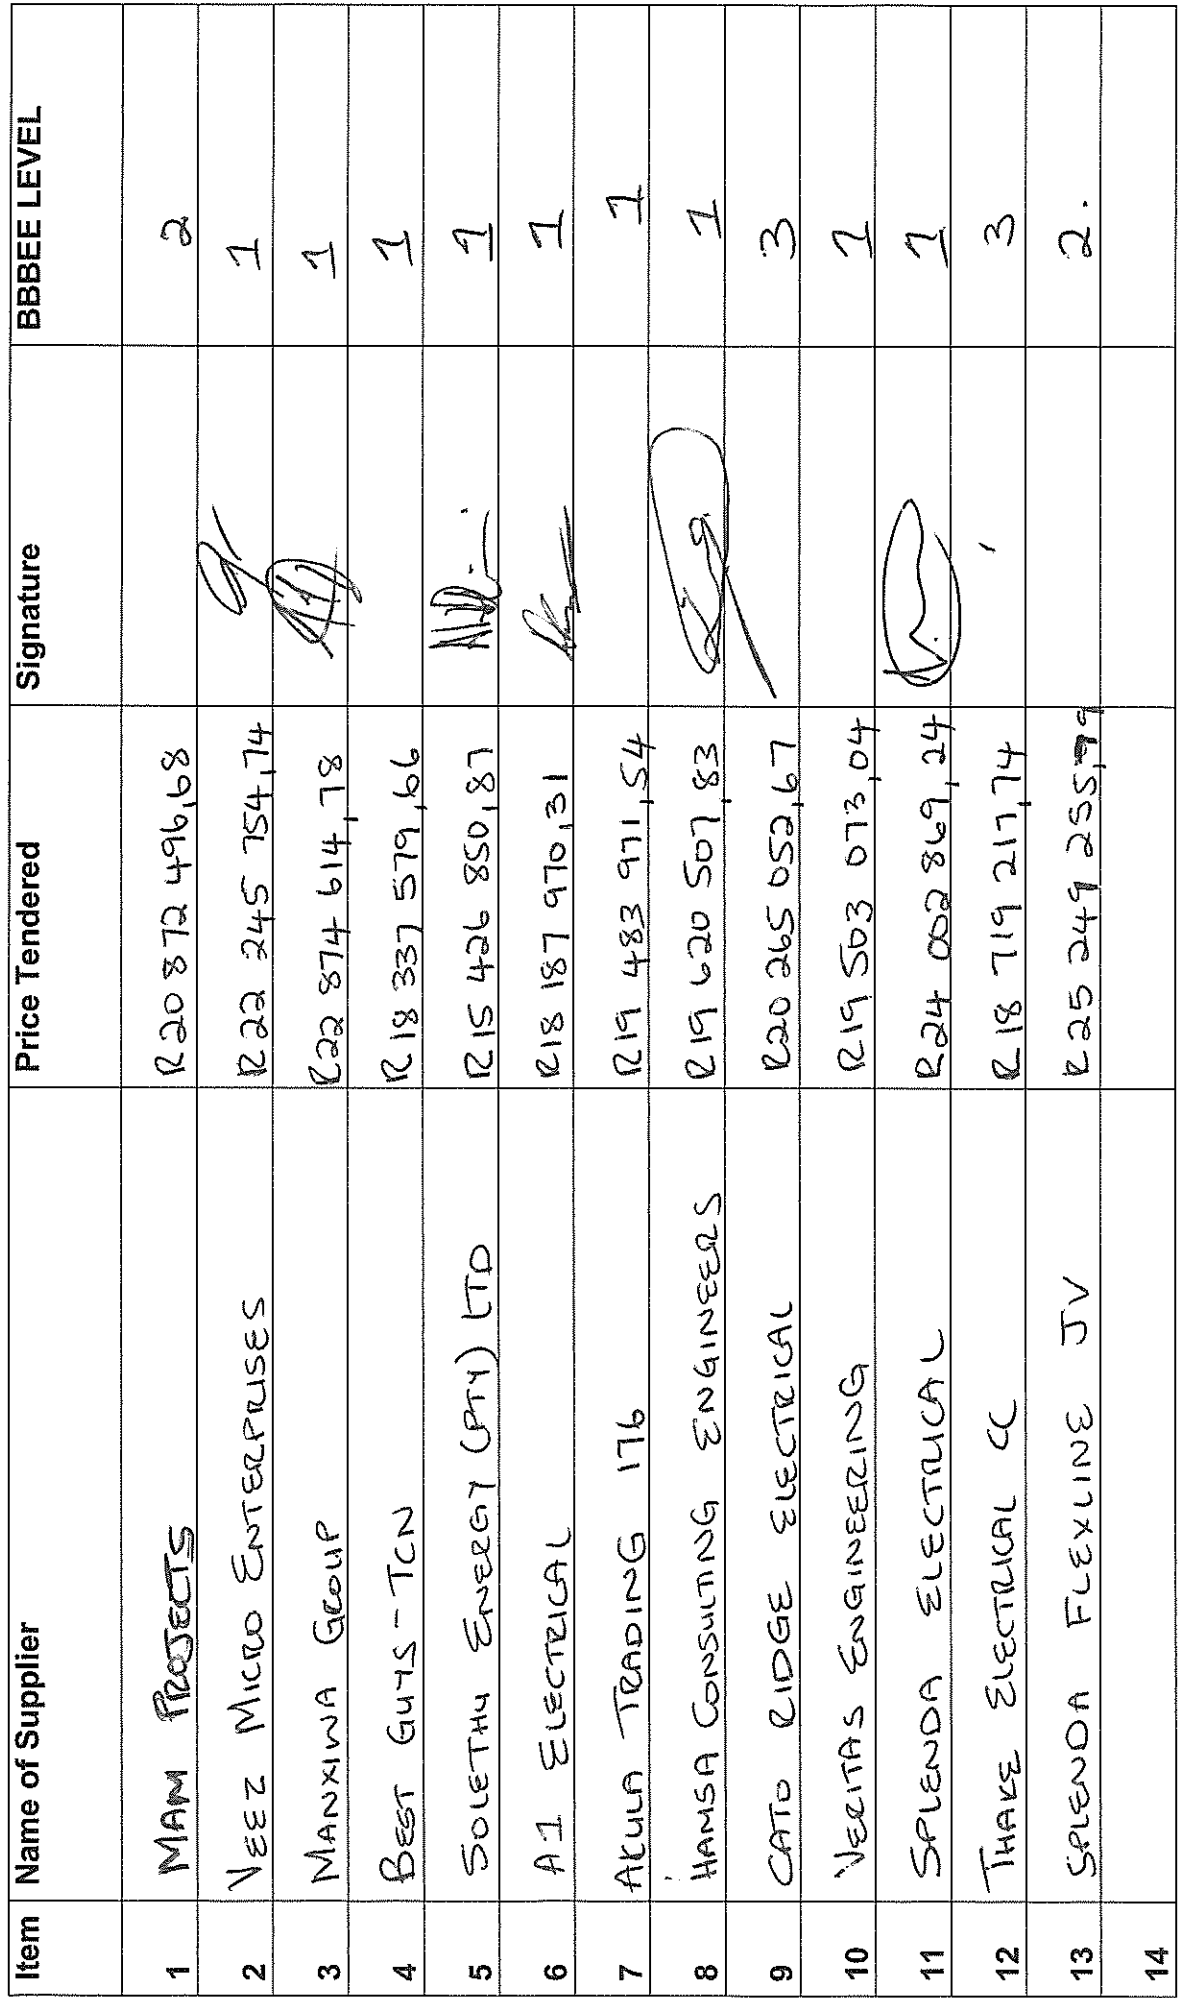 Item Name of Supplier Price Tendered Signature BBBEE LEVEL
1 MAM PROJECTS R20 872 496,68 2
2 VEEZ MICRO ENTERPRISES R22 245 754,74 1
3 MANXIWA GROUP R22 874 614,78 1
4 BEST GUYS - TCN R18 337 579,66 1
5 SOLETHU ENERGY (PTY) LTD R15 426 850,87 1
6 A1 ELECTRICAL R18 187 970,31 1
7 AKULA TRADING 176 R19 483 971,54 1
8 HAMSA CONSULTING ENGINEERS R19 620 507,83 1
9 CATO RIDGE ELECTRICAL R20 265 052,67 3
10 VERITAS ENGINEERING R19 503 073,04 1
11 SPLENDA ELECTRICAL R24 002 869,24 1
12 THAKE ELECTRICAL CC R18 719 217,74 3
13 SPLENDA FLEXLINE JV R25 249 255,79 2.
14